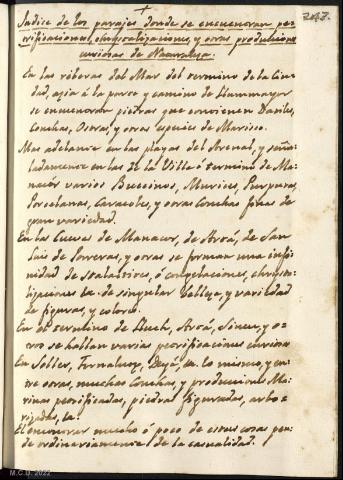 247.
Indice de los parajes donde se encuentran pe-
trificaciones, chrystalizaciones, y otras producciones
curiosas de Naturaleza.
En las riberas del Mar del termino de la Ciu-
dad, azia á la parte y camino de Llummayor
se encuentran piedras que contienen Datiles,
Conchas, Ostras, y otras especies de Marisco.
Mas adelante en las playas del Arenal, y seña-
ladamente en las de la Villa ó termino de Ma-
nacór varios Buccinos, Murices, Purpuras,
Porcelanas, Caracoles, y otras Conchas finas de
gran variedad.
En las Cuevas de Manacor, de Artá, de San
Luis de Porreras, y otras se forman una infi-
nidad de Stalactites, ó congelaciones, chrysta-
lizaciones &c. de singular belleza, y variedad
de figuras, y colores.
En el termino de Lluch, Artá, Sineu, y o-
tros se hallan varias petrificaciones curiosas
En Soller, Fornaluig, Deyá, &c. lo mismo, y en-
tre otras, muchas Conchas, y producciones Ma-
rinas petrificadas, piedras figuradas, arbo-
rizadas, &c.
El encontrar mucho ó poco de estas cosas pen-
de ordinariamente de la casualidad.
M.C.D. 2022